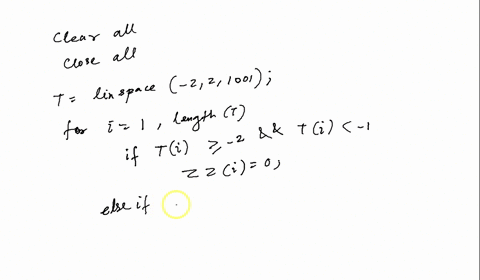 clear all
close all
T = linspace (-2, 2, 1001);
for i = 1, length (T)
if T(i) ≥ -2 && T(i) < -1
ZZ(i) = 0,
else if